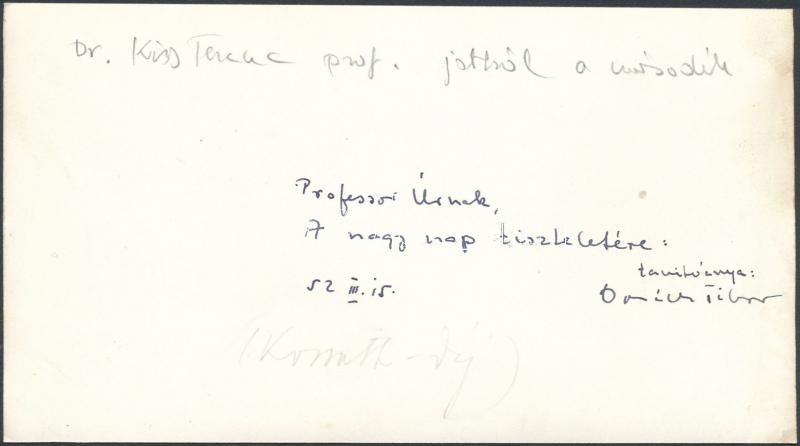 Dr. Kiss Ferenc prof. jobbról a második
Professor Úrnak,
A nagy nap tiszteletére:
tanítványa:
52 III. 15.
Tibor
(Kossuth-díj)